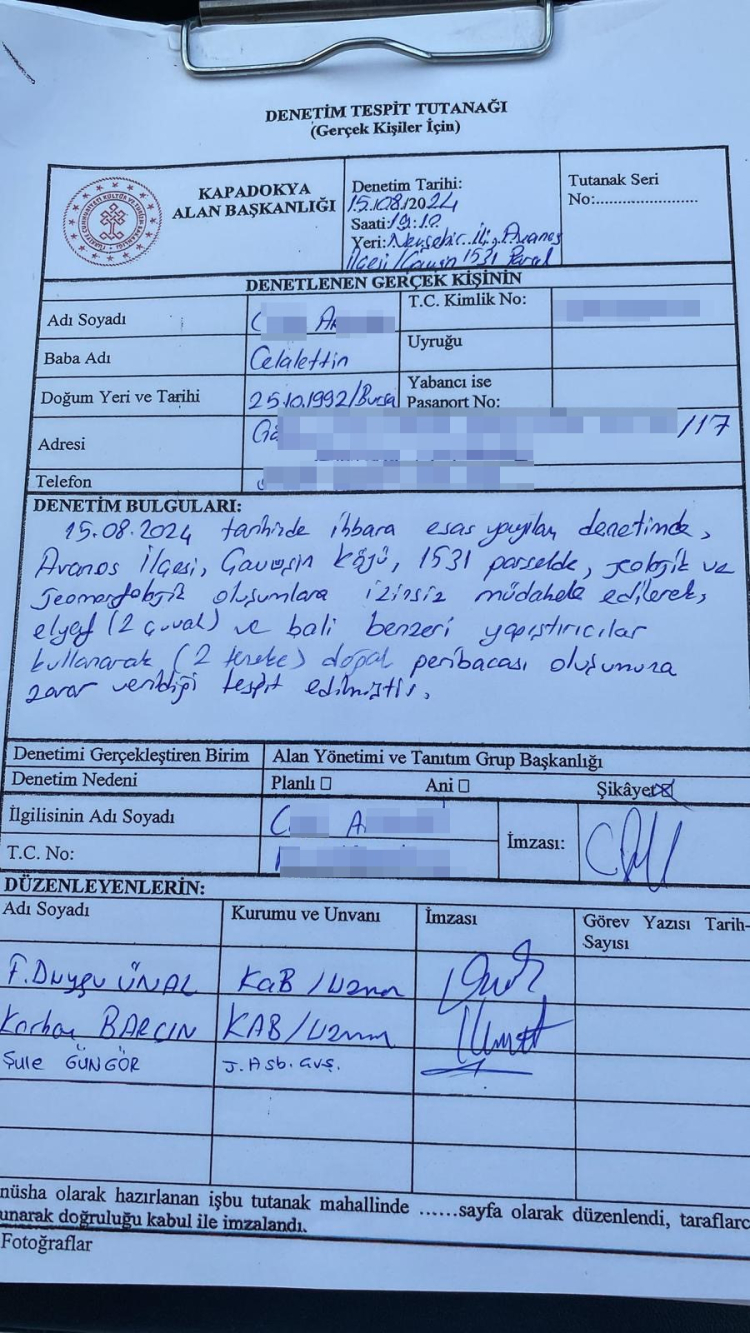 DENETİM TESPİT TUTANAĞI
(Gerçek Kişiler İçin)
KAPADOKYA
ALAN BAŞKANLIĞI
Denetim Tarihi:
15.08/2024
Saati: 19:10
Yeri: Nevşehir İli, Avanos
İlçesi / Çavuşin 1531 Parsel
Tutanak Seri
No:....................
DENETLENEN GERÇEK KİŞİNİN
Adı Soyadı C A
T.C. Kimlik No:
Baba Adı Celalettin
Uyruğu
Doğum Yeri ve Tarihi 25.10.1992/Bursa
Yabancı ise
Pasaport No:
Adresi /17
Telefon
DENETİM BULGULARI:
15.08.2024 tarihide ihbara esas yapılan denetimde,
Avanos İlçesi, Çavuşin Köyü, 1531 parselde, jeolojik ve
jeomorfolojik oluşumlara izinsiz müdahale edilerek,
elyaf (2 çuval) ve bali benzeri yapıştırıcılar
kullanarak (2 teneke) doğal peribacası oluşumuna
zarar verildiği tespit edilmiştir.
Denetimi Gerçekleştiren Birim Alan Yönetimi ve Tanıtım Grup Başkanlığı
Denetim Nedeni Planlı ☐ Ani ☐ Şikâyet ☒
İlgilisinin Adı Soyadı C A
İmzası:
T.C. No:
DÜZENLEYENLERİN:
Adı Soyadı Kurumu ve Unvanı İmzası Görev Yazısı Tarih-
Sayısı
F. Duygu ÜNAL KAB / Uzman
BARÇIN KAB / Uzman
Şule GÜNGÖR J. Asb. Çvş.
nüsha olarak hazırlanan işbu tutanak mahallinde ......sayfa olarak düzenlendi, taraflarc
unarak doğruluğu kabul ile imzalandı.
Fotoğraflar